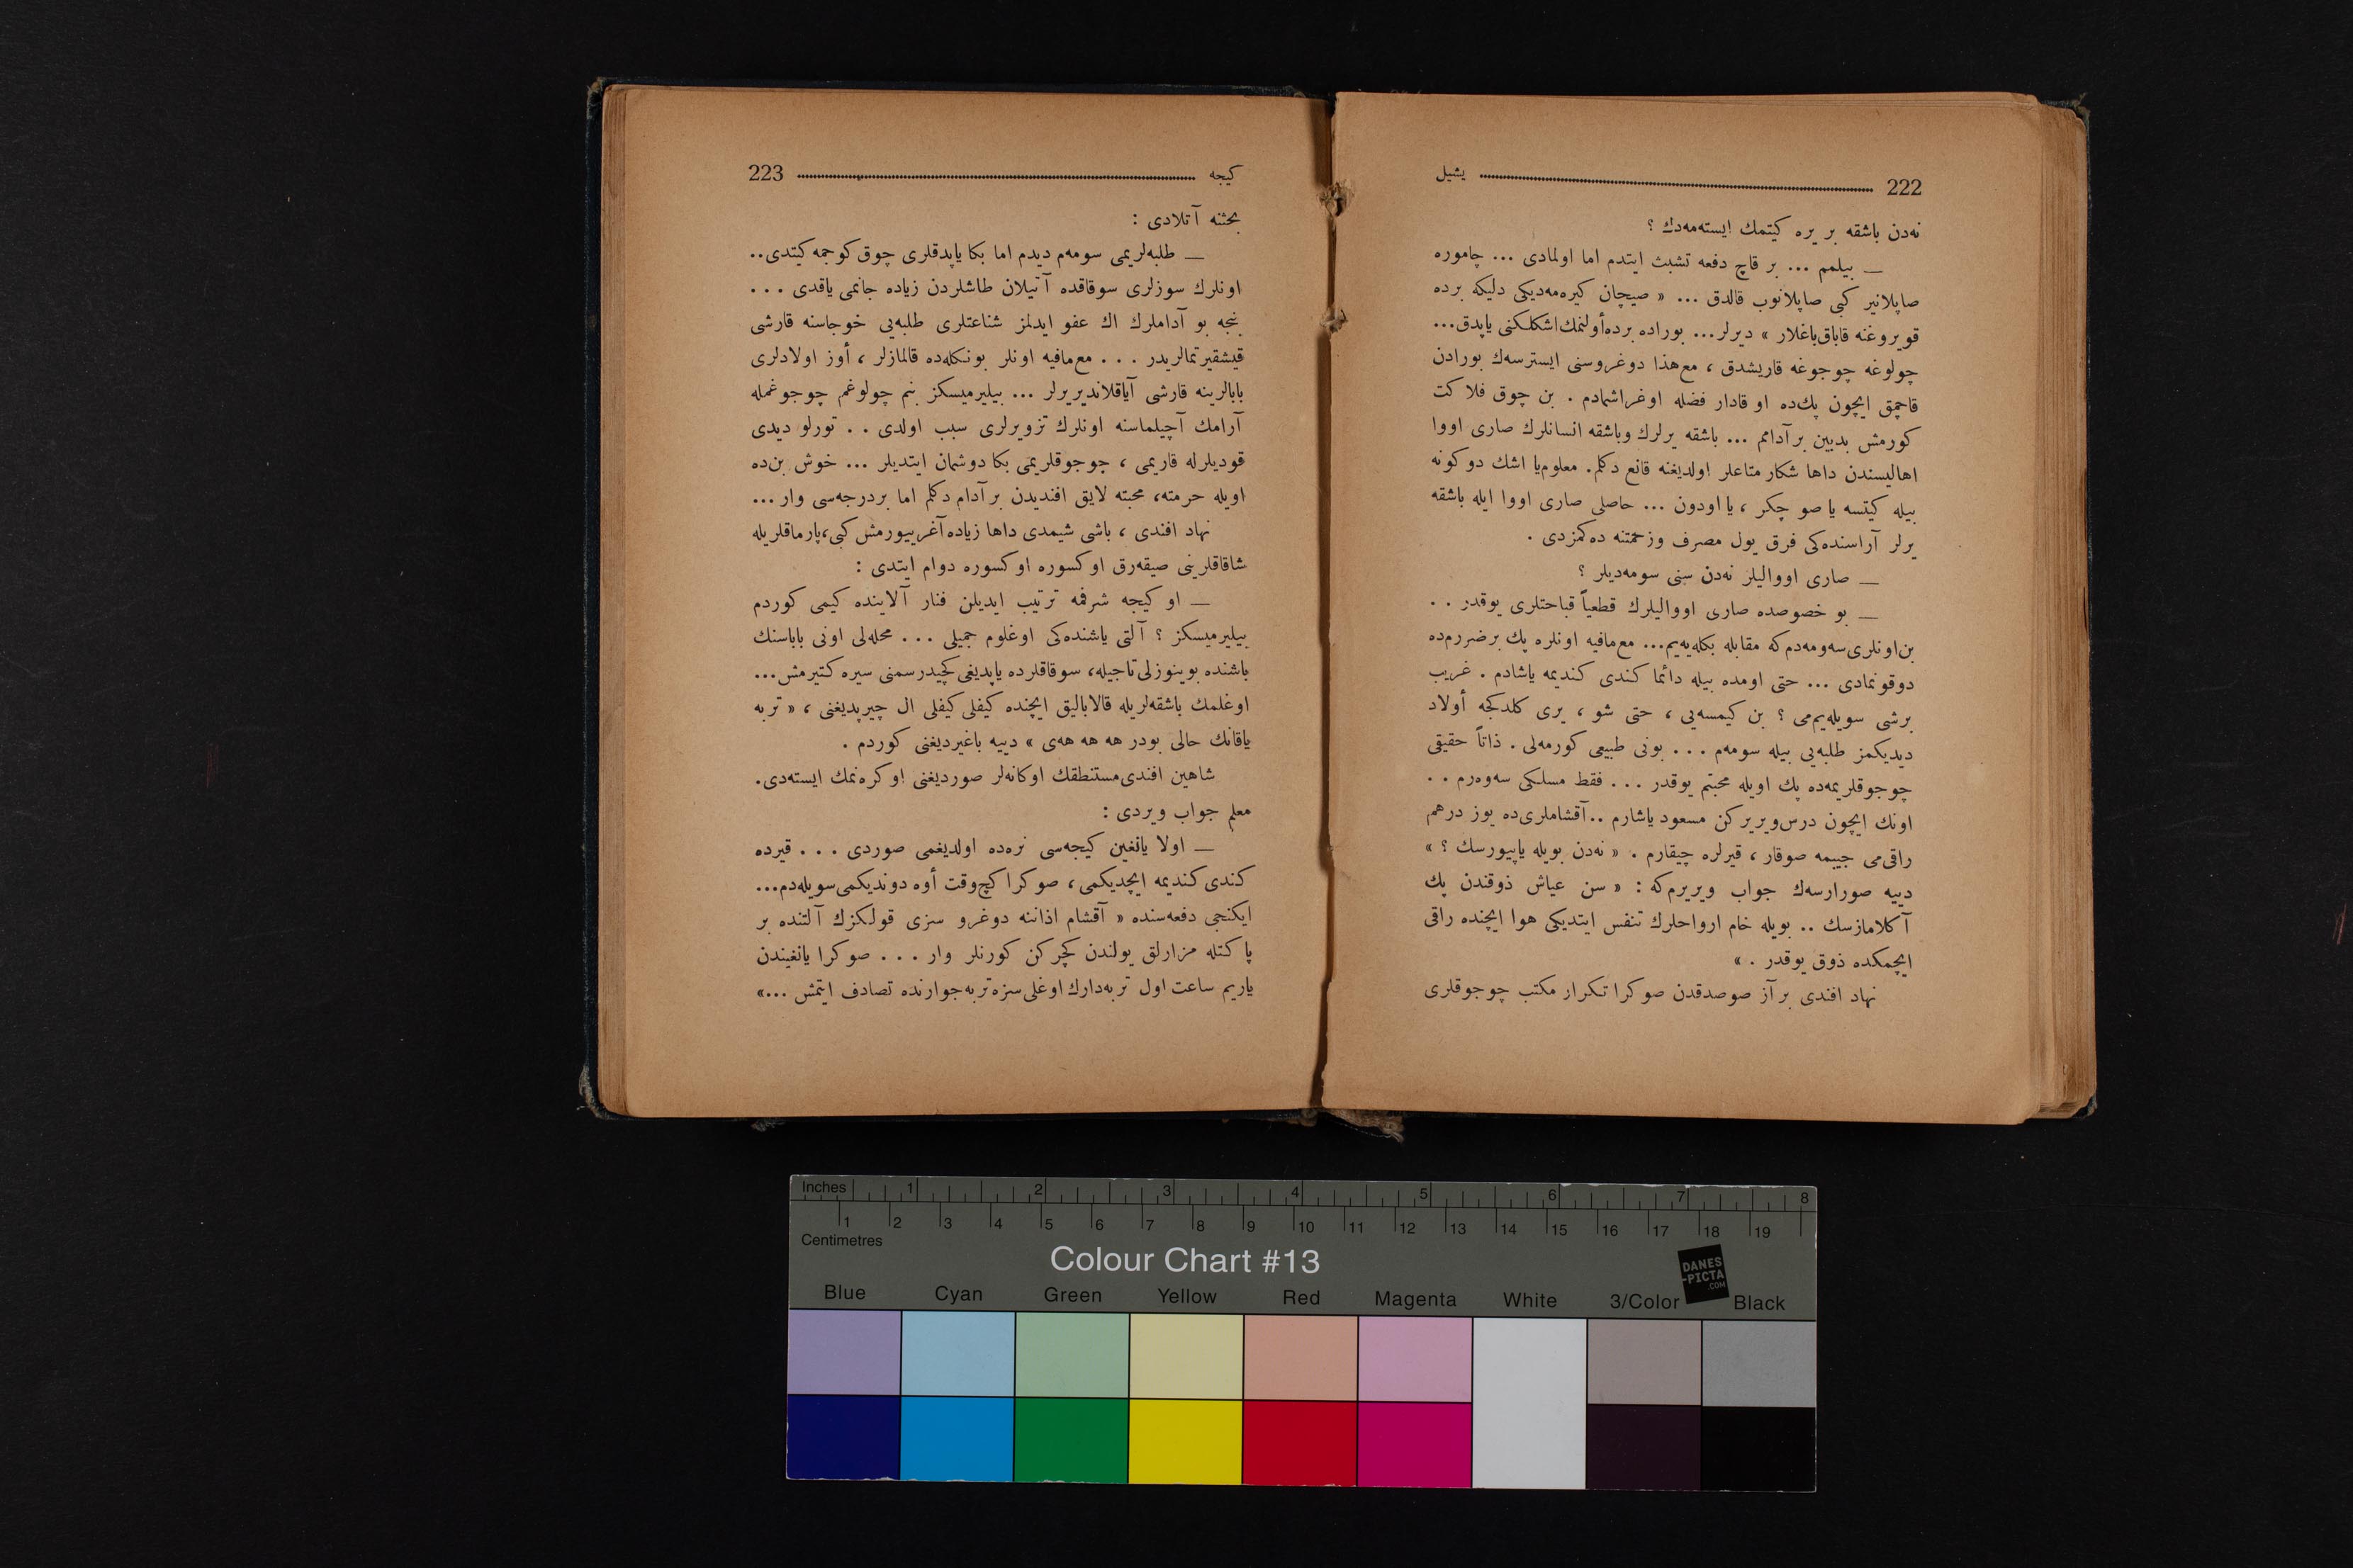 222 يشيل
نه‌دن باشقه بر يره كيتمك ايسته‌مه‌دك ؟
— بيلمم ... بر قاچ دفعه تشبث ايتدم اما اولمادى ... چاموره
صاپلانير كبى صاپلانوب قالدق ... « صيچان كيره‌مه‌ديكى دليكه برده
قويروغنه قاباق باغلار » ديرلر... بوراده برده أولنمك اشكلكنى ياپدق...
چولوغه چوجوغه قاريشدق ، مع‌هذا دوغروسنى ايسترسه‌ك بورادن
قاچمق ايچون پك‌ده او قادار فضله اوغراشمادم . بن چوق فلاكت
كورمش بدبين بر آدامم ... باشقه يرلرك وباشقه انسانلرك صارى اووا
اهاليسندن داها شكار متاعلر اولديغنه قانع دكلم. معلوم‌يا اشك دوكونه
بيله كيتسه يا صو چكر ، يا اودون ... حاصلى صارى اووا ايله باشقه
يرلر آراسنده‌كى فرق يول مصرف وزحمتنه ده‌كمزدى .
— صارى اووالیلر نه‌دن سنى سومه‌ديلر ؟
— بو خصوصده صارى اووالیلرك قطعياً قباحتلرى يوقدر . .
بن اونلرى سه‌ومه‌دم‌كه مقابله بكله‌يه‌يم... مع‌مافيه اونلره پك بر ضررم‌ده
دوقونمادى ... حتى اومده بيله دائما كندى كنديمه ياشادم . غريب
برشى سويله‌يم‌مى ؟ بن كيمسه‌يى ، حتى شو ، يرى كلدكجه أولاد
ديديكمز طلبه‌يى بيله سومه‌م ... بونى طبيعى كورمه‌لى . ذاتاً حقيقى
چوجوقلريمه‌ده پك اويله محبتم يوقدر ... فقط مسلكى سه‌وه‌رم . .
اونك ايچون درس ويريركن مسعود ياشارم .. آقشاملرى‌ده يوز درهم
راقى‌مى جيبمه صوقار ، قيرلره چيقارم . « نه‌دن بويله ياپيورسك ؟ »
دييه صورارسه‌ك جواب ويريرم‌كه : « سن عياش ذوقندن پك
آكلامازسك .. بويله خام ارواحلرك تنفس ايتديكى هوا ايچنده راقى
ايچمكده ذوق يوقدر . »
نهاد افندى بر آز صوصدقدن صوكرا تكرار مكتب چوجوقلرى
كيجه 223
بحثنه آتلادى :
— طلبه‌لريمى سومه‌م ديدم اما بكا ياپدقلرى چوق كوجمه كيتدى..
اونلرك سوزلرى سوقاقده آتيلان طاشلردن زياده جانمى ياقدى ...
بنجه بو آداملرك اك عفو ايدلمز شناعتلرى طلبه‌يى خوجاسنه قارشى
قيشقيرتمالريدر ... مع‌مافيه اونلر بونكله‌ده قالمازلر ، أوز اولادلرى
بابالرينه قارشى آياقلانديريرلر ... بيليرميسكز بنم چولوغم چوجوغمله
آرامك آچيلماسنه اونلرك تزويرلرى سبب اولدى . . تورلو ديدى
قوديلرله قاريمى ، چوجوقلريمى بكا دوشمان ايتديلر ... خوش بن‌ده
اويله حرمته، محبته لايق افنديدن بر آدام دكلم اما بر درجه‌سى وار ...
نهاد افندى ، باشى شيمدى داها زياده آغرييورمش كبى، پارماقلريله
شاقاقلرينى صيقه‌رق اوكسوره اوكسوره دوام ايتدى :
— او كيجه شرفمه ترتيب ايديلن فنار آلاينده كيمى كوردم
بيليرميسكز ؟ آلتى ياشنده‌كى اوغلوم جميلى ... محله‌لى اونى باباسنك
باشنده بوينوزلى تاجيله، سوقاقلرده ياپديغى كچيد رسمنى سيره كتيرمش...
اوغلمك باشقه‌لريله قالاباليق ايچنده كيفلى كيفلى ال چيرپديغنى ، « تربه
ياقانك حالى بودر هه هه هه‌ى » دييه باغيرديغنى كوردم .
شاهين افندى مستنطقك اوكا نه‌لر صورديغنى اوكره‌نمك ايسته‌دى.
معلم جواب ويردى :
— اولا يانغين كيجه‌سى نره‌ده اولديغمى صوردى ... قيرده
كندى كنديمه ايچديكمى ، صوكرا كچ وقت أوه دونديكمى سويله‌دم...
ايكنجى دفعه‌سنده « آقشام اذاننه دوغرو سزى قولكزك آلتنده بر
پاكتله مزارلق يولندن كچركن كورنلر وار ... صوكرا يانغيندن
ياريم ساعت اول تربه‌دارك اوغلى سزه تربه جوارنده تصادف ايتمش ...»
Inches 1 2 3 4 5 6 7 8
1 2 3 4 5 6 7 8 9 10 11 12 13 14 15 16 17 18 19
Centimetres
Colour Chart #13
DANES
-PICTA
.COM
Blue Cyan Green Yellow Red Magenta White 3/Color Black